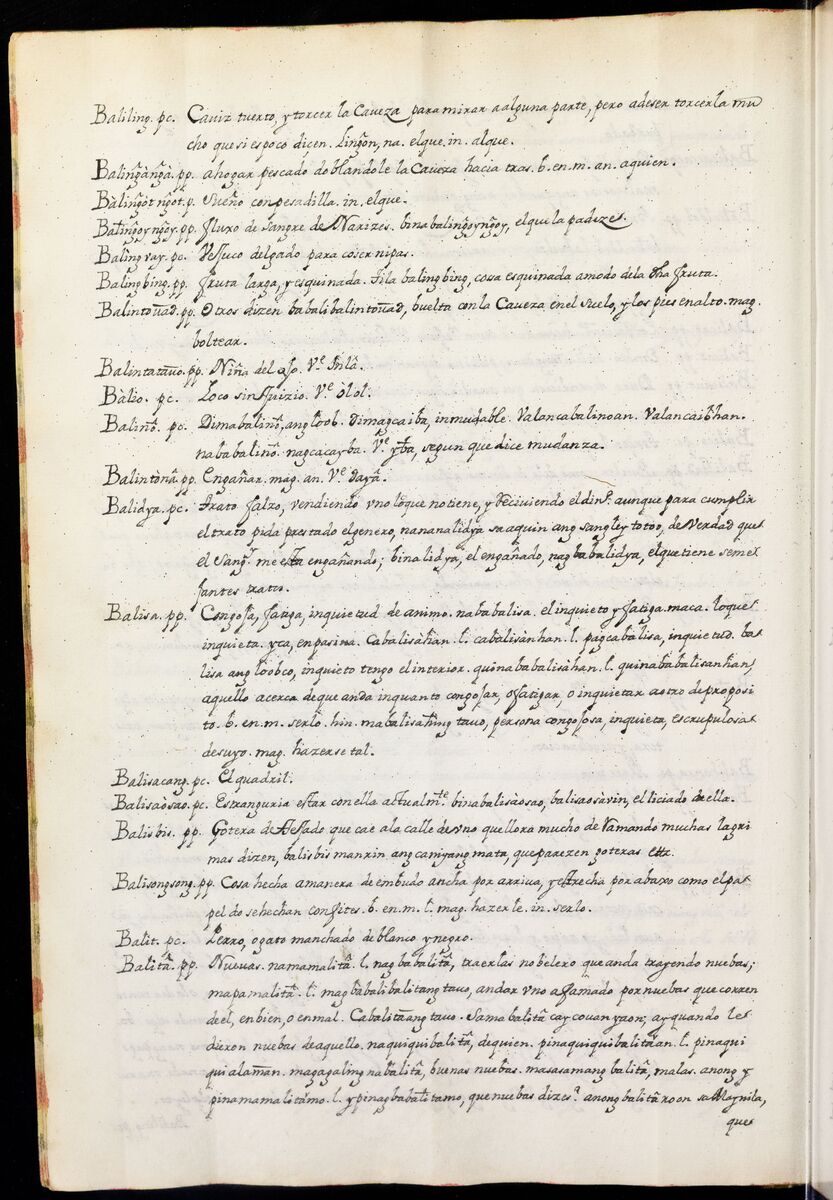 Baliling. pc. Caviz tuerto, y torcer la Caveza para mirar a alguna parte, pero a deser torcer la mu
cho que si es poco dicen. Lingon, na. el que. in. al que.
Balingàngà. pp. ahogar pescado doblandole la Caveza hacia tras. b. en. m. an. a quien.
Bàlingòt ngòt. p. sueño con pesadilla. in. el que.
Balingoyngoy. pp. fluxo de sangre de Narizes. binabalingoyngoy, el que la padeze.
Baling vay. pc. Vejuco delgado para coser nipas.
Balingbing. pp. fruta larga, y esquinada. Sila balingbing, cosa esquinada a modo dela dha fruta.
Balintouad. pp. Otros dizen babalibalintouad, buelta con la Caveza en el suelo, y los pies en alto. mag.
boltear.
Balintatauo. pp. Niña del ojo. Ve. Inlâ.
Bàlio. pc. Loco sin Juizio. Ve. òlol.
Balinò. pc. Dimabalinò, ang loob. Dimagcaiba, inmudable. Valancabalinoan. Valancaibhan.
nababalinò. nagcacayba. Ve. yba, segun que dice mudanza.
Balintònâ. pp. Engañar. mag. an. Ve. dayâ.
Balidya. pc. trato falzo, vendiendo vno loque no tiene, y Reciviendo el dino. aunque para cumplir
el trato pida prestado el genero, nananalidya sa aquin ang sangley totoo, de Verdad que
el Sangr. me esta engañando; binalidya, el engañado, nagbabalidya, el que tiene seme
jantes tratos.
Balisa. pp. Congoja, fatiga, inquietud de animo. nababalisa. el inquieto y fatiga. maca. lo que
inquieta. yca, en pasiva. Cabalisàhan. l. cabalisànhan. l. pagcabalisa, inquietud. ba
lisa ang loobco, inquieto tengo el interior. quinababalisàhan. l. quinababalisanhan,
aquello acerca de que anda inquanto congojar, o fatigar, o inquietar a otro de proposi
to. b. en. m. serlo. hin. mabalisahing tauo, persona congojosa, inquieta, escrupulosa
desuyo. mag. hazerse tal.
Balisacang. pc. El quadril.
Balisaòsao. pc. Estranguria estar con ella actualmte. binabalisàosao, balisaosàvin, el liciado de ella.
Balisbis. pp. Gotera de Tejado que cae ala calle de vno que llora mucho derramando muchas lagri
mas dizen, balisbis manrin ang caniyang mata, que parezen goteras ettz.
Balisongsong. pp. Cosa hecha amanera de embudo ancha por arriva, y estrecha por abaxo como el pa
pel do se hechan confites. b. en. m. l. mag. hazerle. in. serlo.
Balit. pc. Perro, o gato manchado de blanco y negro.
Balitâ. pp. Nuevas. namamalitâ. l. nagbabalitâ, traerlas nobelero que anda trayendo nuebas;
mapamalitâ. l. magbàbalibalitang tauo, andar vno afamado por nuebas que corren
de el, en bien, o en mal. Cabalitàang tauo. Sama balitâ cay couan yaon; ay quando le
dieron nuebas de aquello. naquiquibalitâ, de quien. pinaquiquibalitàan. l. pinaqui
quialaman. magagaling na balitâ, buenas nuebas. masasamang balitâ, malas. anong y
pinamamalitàmo. l. ypinagbabalitamo, que nuebas dizes? anong balitâ roon sa Maynila,
que